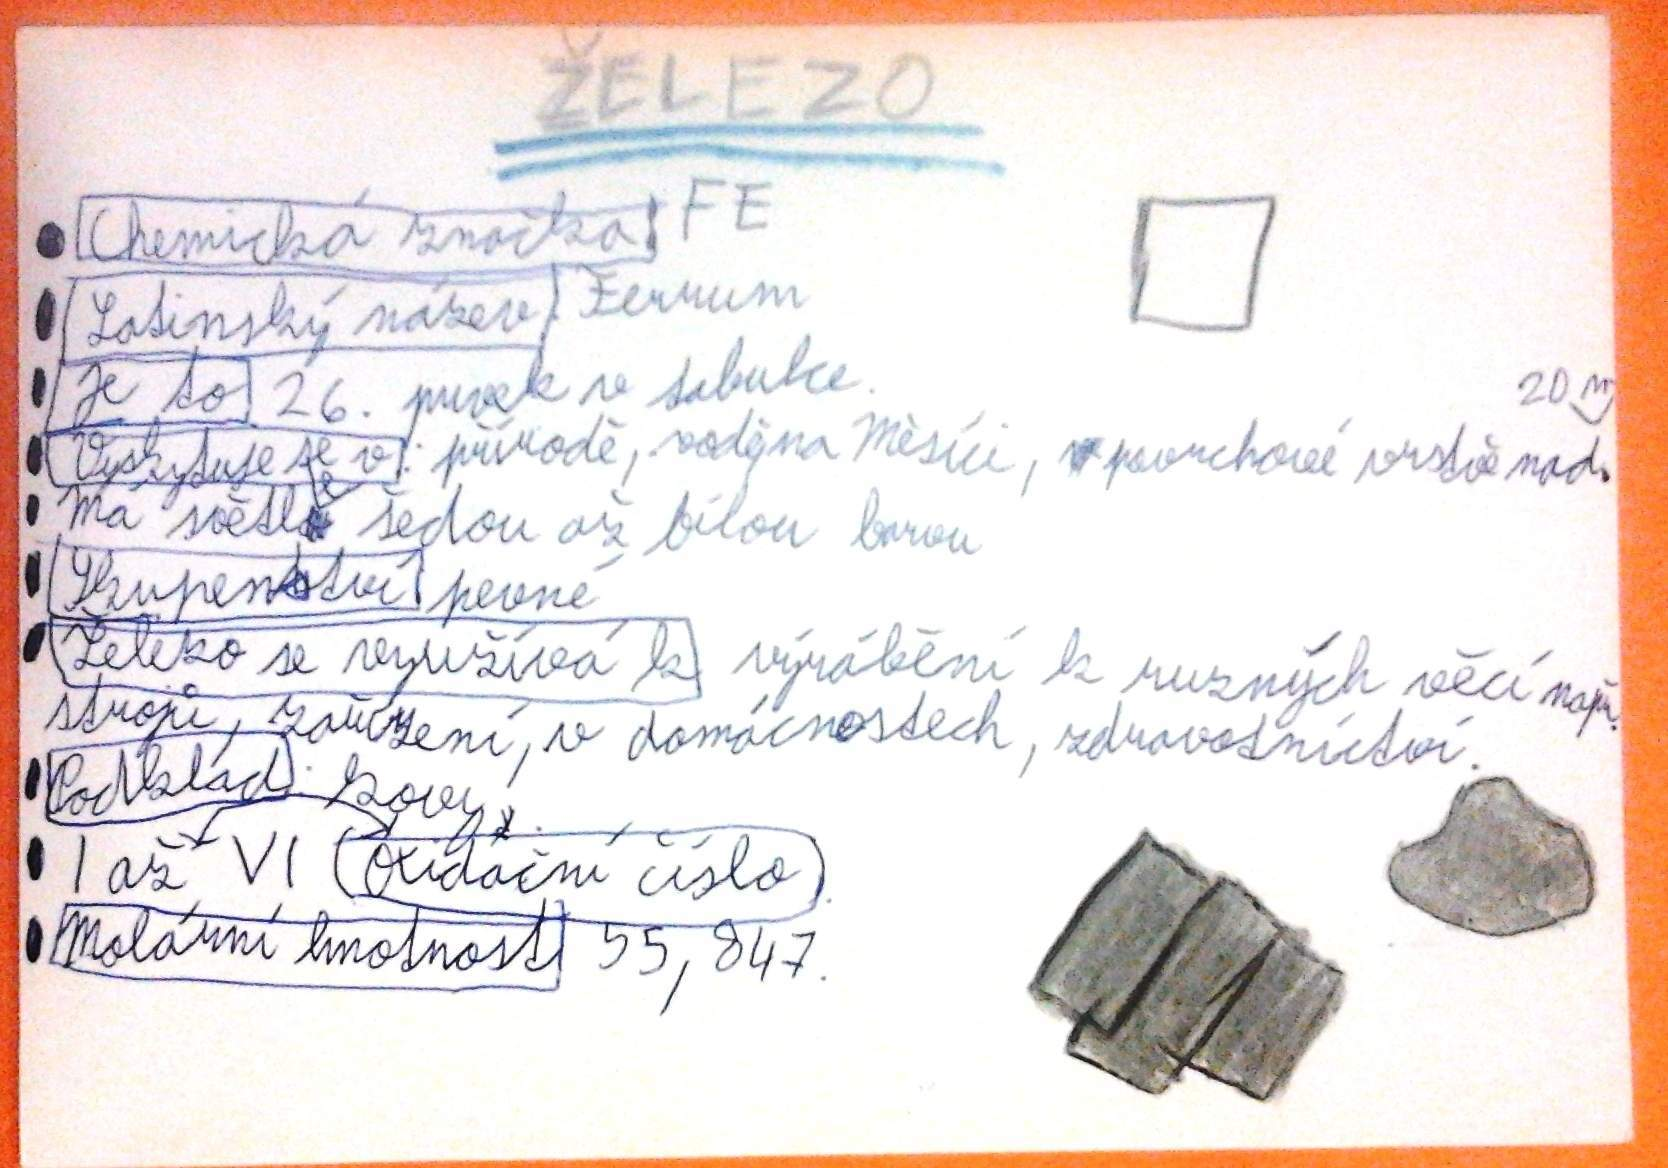 ŽELEZO
Chemická značka FE
Latinský název Ferrum
Je to 26. prvek v tabulce.
20 m
Vyskytuje se v: přírodě, vodě, na Měsíci, v povrchové vrstvě nad
Má světle šedou až bílou barvu
Skupenství pevné
Železo se využívá k výrábění k ruzných věcí např.
strojů, zařízení, v domácnostech, zdravotnictví.
Podklad: kovy.
I až VI Oxidáční číslo.
Molární hmotnost 55,847.